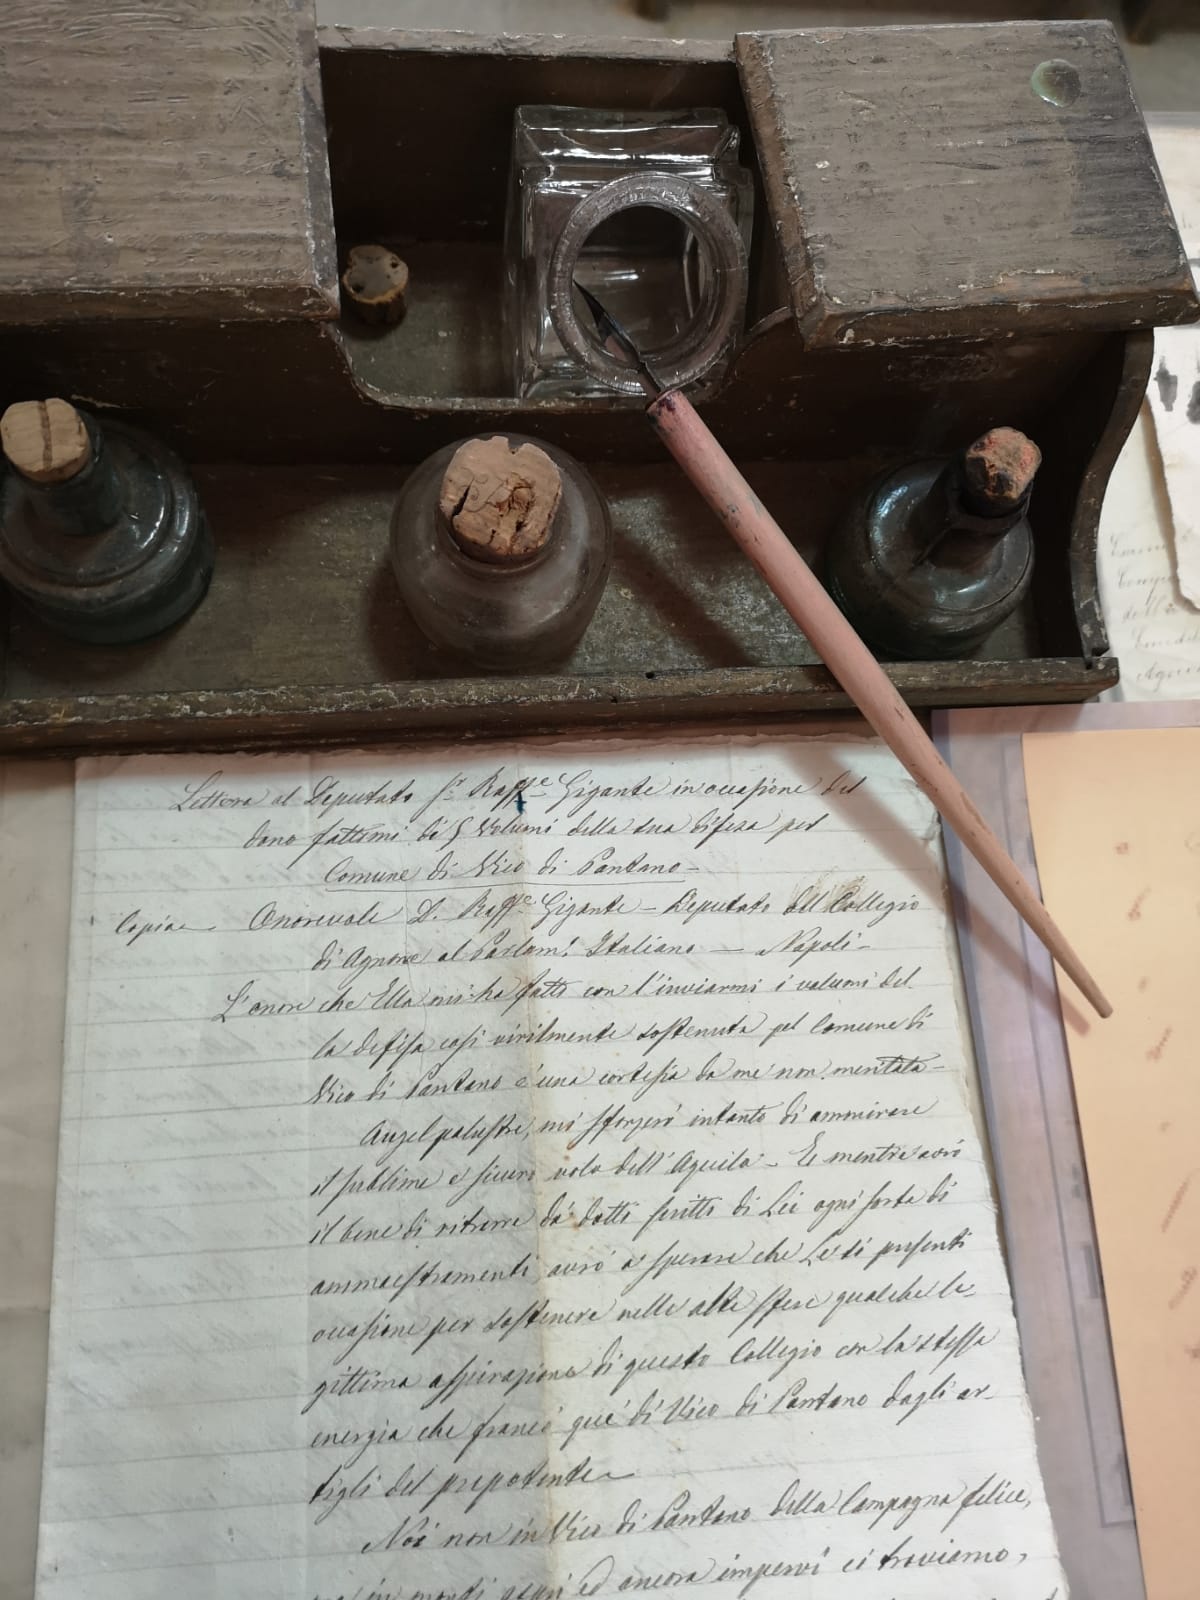 Lettera al Deputato Sr. Raffe. Gigante in occasione del
dono fattomi di 5 Volumi della sua difesa pel
Comune di Vico di Pantano -
Copia - Onorevole D. Raffe. Gigante - Deputato del Collegio
di Agnone al Parlam. Italiano - Napoli -
L'onore che Ella mi ha fatto con l'inviarmi i volumi del
la difesa così virilmente sostenuta pel Comune di
Vico di Pantano è una cortesia da me non meritata -
Augel palustre, mi sforzerò intanto di ammirare
il sublime e sicuro volo dell'Aquila - E mentre avrò
il bene di ritrarre da' dotti scritti di Lei ogni sorta di
ammaestramenti, avrò a sperare che Le si presenti
occasione per sostenere nelle alte sfere qualche le-
gittima aspirazione di questo Collegio con la stessa
energia che francò que' di Vico di Pantano dagli ar-
tigli del prepotente
Noi non in Vico di Pantano della Campagna felice,
ma in monti ed ancora impervi ci troviamo,